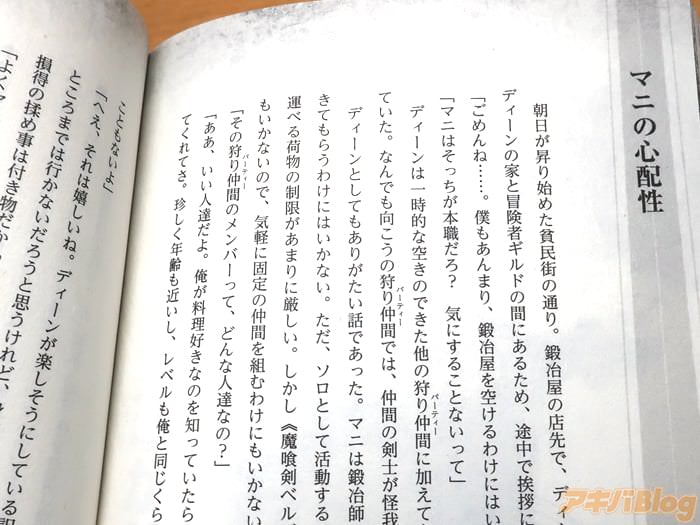 マニの心配性
朝日が昇り始めた貧民街の通り。鍛冶屋の店先で、ディ
ディーンの家と冒険者ギルドの間にあるため、途中で挨拶に
「ごめんね……。僕もあんまり、鍛冶屋を空けるわけにはい
「マニはそっちが本職だろ？　気にすることないって」
ディーンは一時的な空きのできた他の狩り仲間に加えて
パーティー
ていた。なんでも向こうの狩り仲間では、仲間の剣士が怪我
パーティー
ディーンとしてもありがたい話であった。マニは鍛冶師
きてもらうわけにはいかない。ただ、ソロとして活動する
運べる荷物の制限があまりに厳しい。しかし《魔喰剣ベル
もいかないので、気軽に固定の仲間を組むわけにもいかない
「その狩り仲間のメンバーって、どんな人達なの？」
パーティー
「ああ、いい人達だよ。俺が料理好きなのを知っていたら
てくれてさ。珍しく年齢も近いし、レベルも俺と同じくら
こともないよ」
「へえ、それは嬉しいね。ディーンが楽しそうにしている
ところまでは行かないだろうと思うけれど、
損得の揉め事は付き物だか
アキバBlog